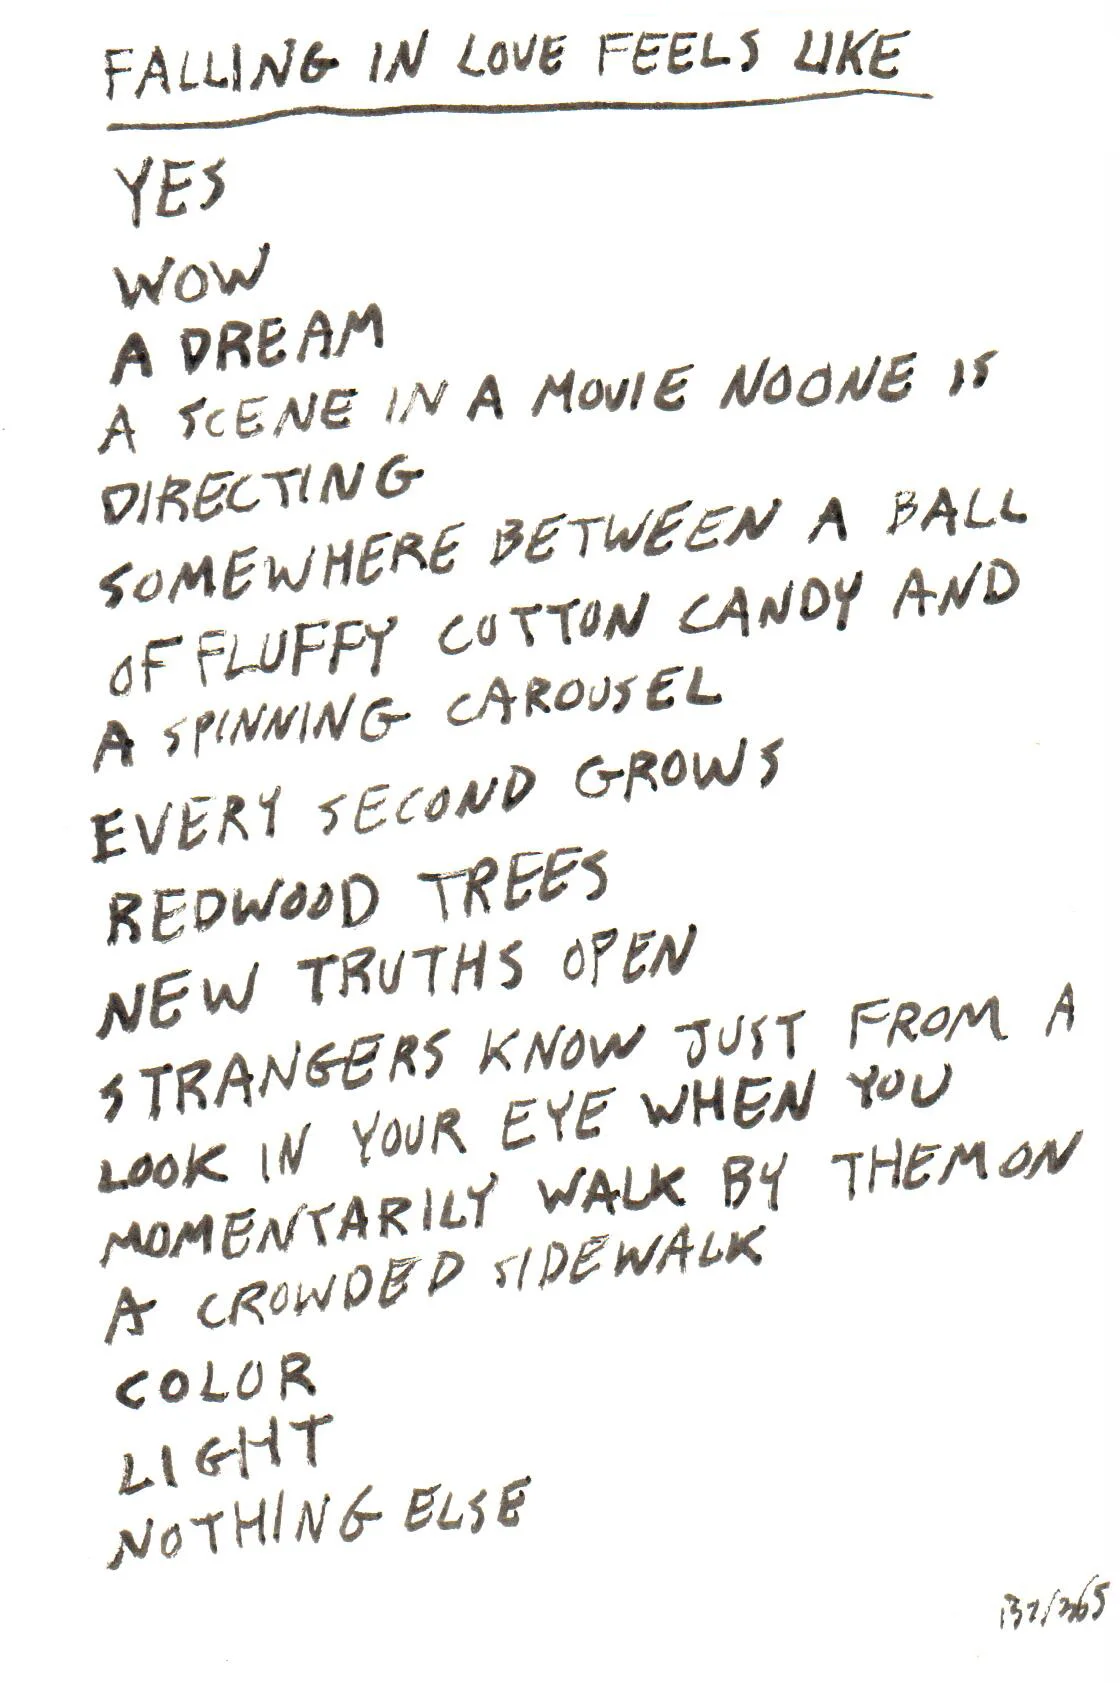 FALLING IN LOVE FEELS LIKE
YES
WOW
A DREAM
A SCENE IN A MOVIE NOONE IS
DIRECTING
SOMEWHERE BETWEEN A BALL
OF FLUFFY COTTON CANDY AND
A SPINNING CAROUSEL
EVERY SECOND GROWS
REDWOOD TREES
NEW TRUTHS OPEN
STRANGERS KNOW JUST FROM A
LOOK IN YOUR EYE WHEN YOU
MOMENTARILY WALK BY THEM ON
A CROWDED SIDEWALK
COLOR
LIGHT
NOTHING ELSE
137/365